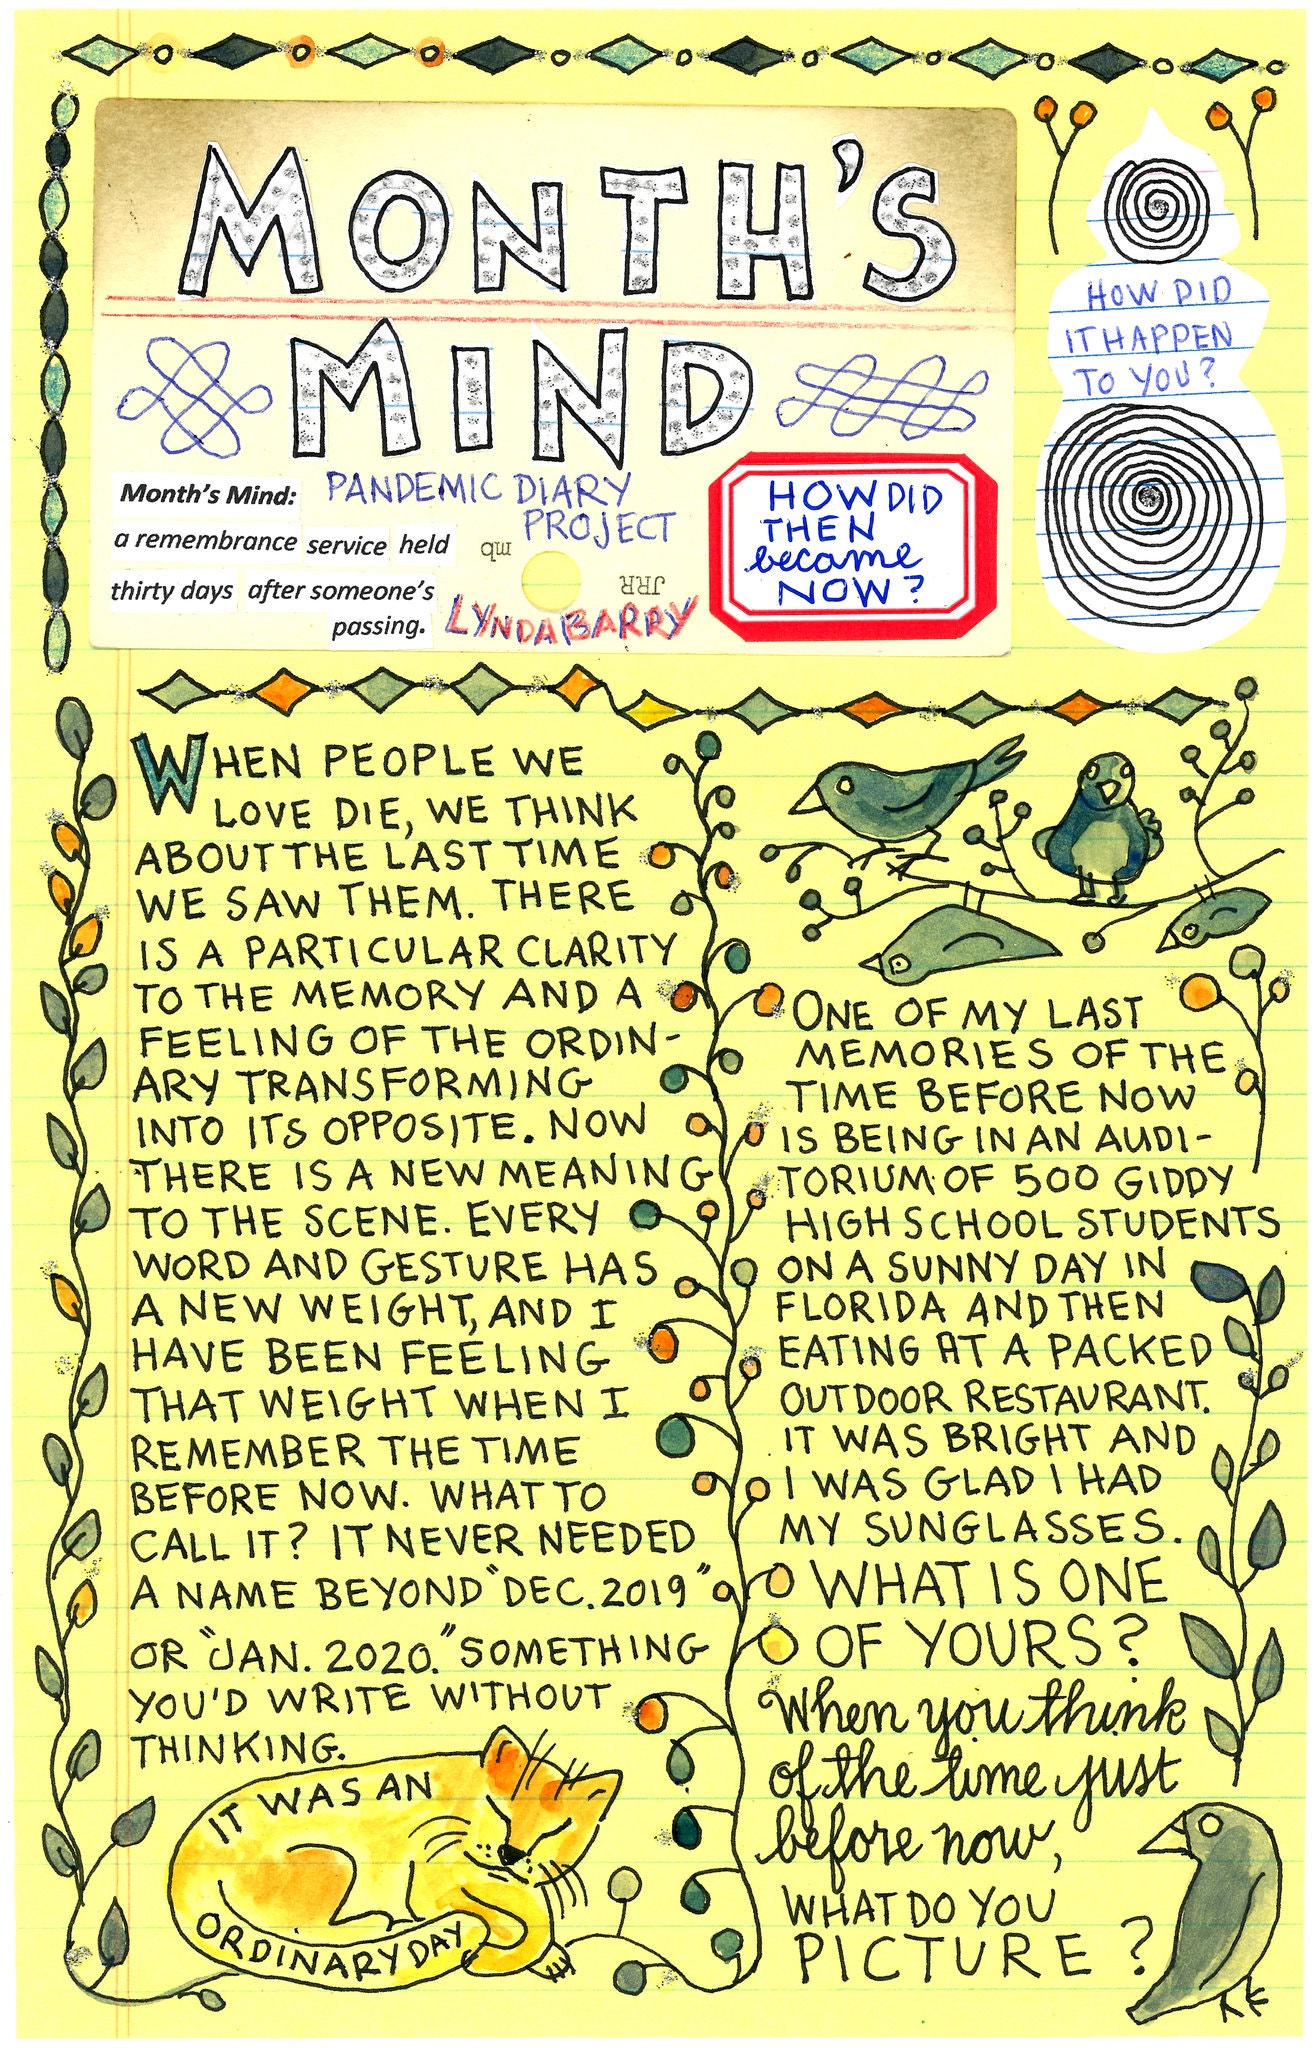 MONTH'S
MIND
Month's Mind:
a remembrance service held
thirty days after someone's
passing.
PANDEMIC DIARY
PROJECT
mb
JRR
LYNDA BARRY
HOW DID
THEN
became
NOW?
HOW DID
IT HAPPEN
TO YOU?
WHEN PEOPLE WE
LOVE DIE, WE THINK
ABOUT THE LAST TIME
WE SAW THEM. THERE
IS A PARTICULAR CLARITY
TO THE MEMORY AND A
FEELING OF THE ORDIN-
ARY TRANSFORMING
INTO ITS OPPOSITE. NOW
THERE IS A NEW MEANING
TO THE SCENE. EVERY
WORD AND GESTURE HAS
A NEW WEIGHT, AND I
HAVE BEEN FEELING
THAT WEIGHT WHEN I
REMEMBER THE TIME
BEFORE NOW. WHAT TO
CALL IT? IT NEVER NEEDED
A NAME BEYOND "DEC. 2019"
OR "JAN. 2020." SOMETHING
YOU'D WRITE WITHOUT
THINKING.
IT WAS AN
ORDINARY DAY
ONE OF MY LAST
MEMORIES OF THE
TIME BEFORE NOW
IS BEING IN AN AUDI-
TORIUM OF 500 GIDDY
HIGH SCHOOL STUDENTS
ON A SUNNY DAY IN
FLORIDA AND THEN
EATING AT A PACKED
OUTDOOR RESTAURANT.
IT WAS BRIGHT AND
I WAS GLAD I HAD
MY SUNGLASSES.
WHAT IS ONE
OF YOURS?
When you think
of the time just
before now,
WHAT DO YOU
PICTURE?